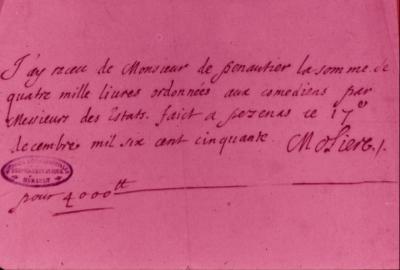 J'ay receu de Monsieur de penautier la somme de
quatre mille liures ordonnées aux comediens par
Messieurs des Estats. faict a pezenas ce 17e
decembre mil six cent cinquante. Moliere /.
HERAULT
pour 4000tt